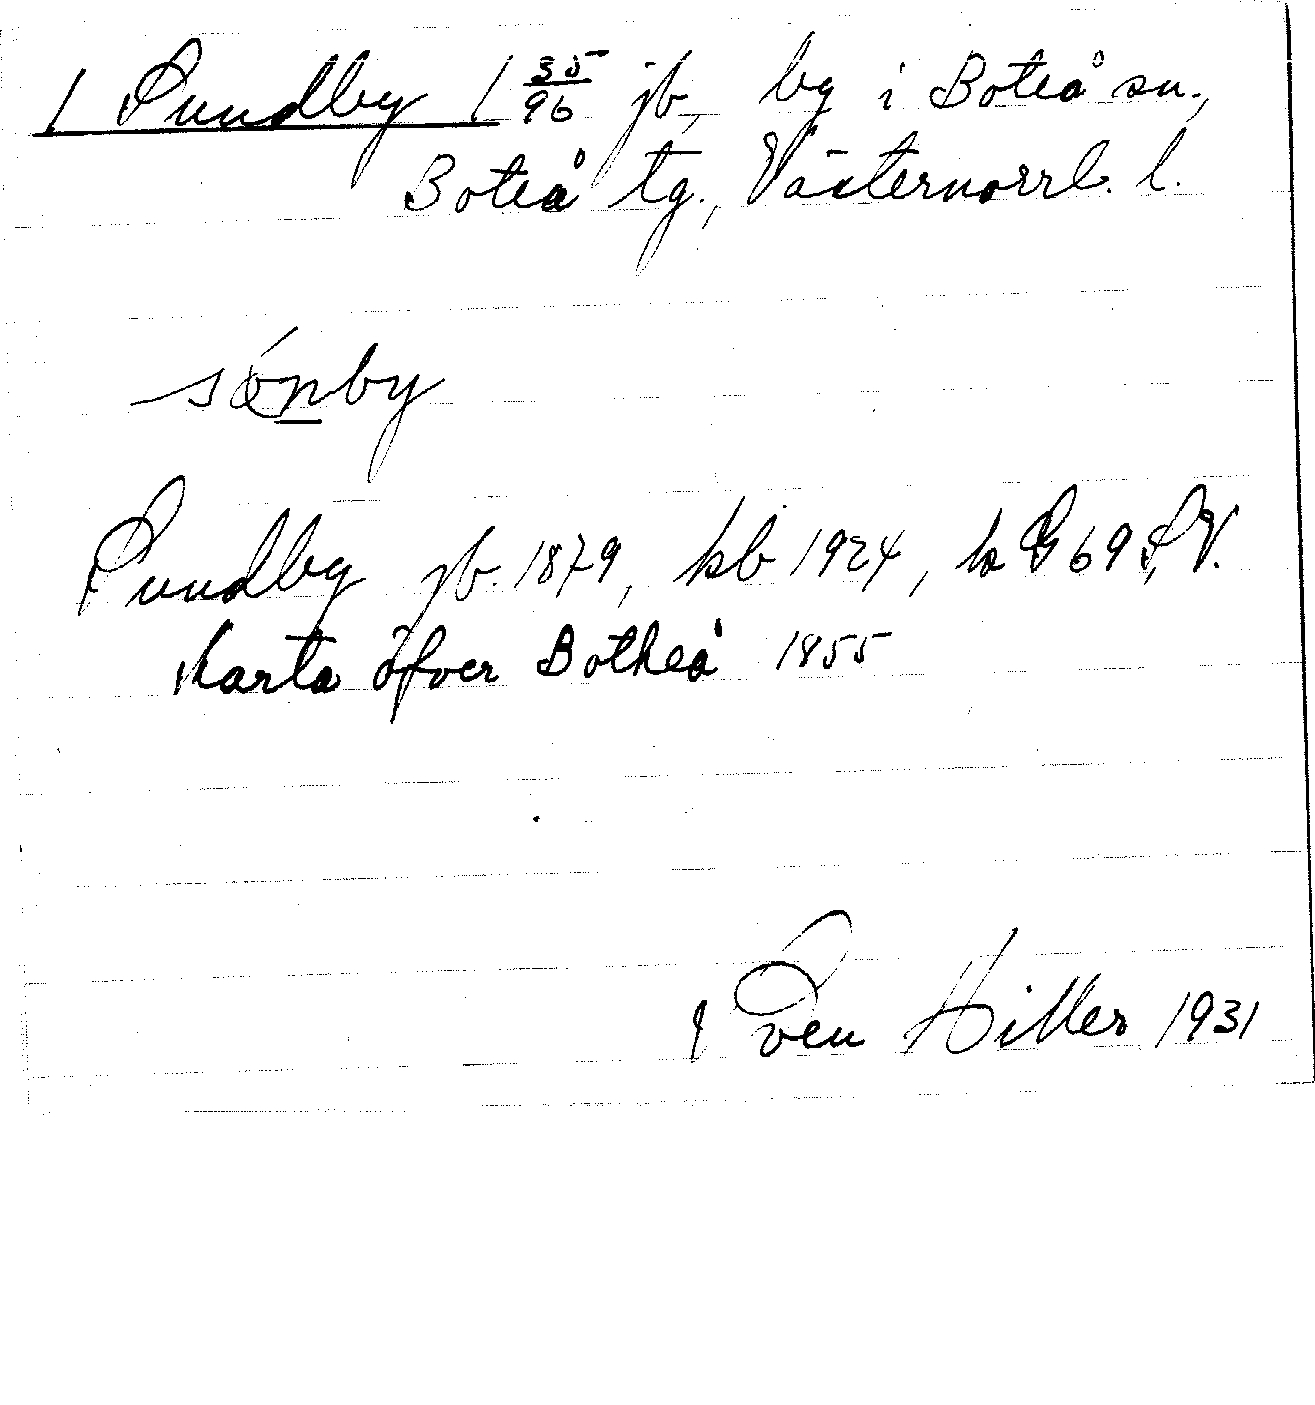 1 Sundby 1 35/96 jb, by i Boteå sn.,
Boteå tg., Västernorrl. l.
sónby
Sundby jb. 1879, kb 1924, k G 69 S.V.
karta öfver Botheå 1855
Sven Hiller 1931